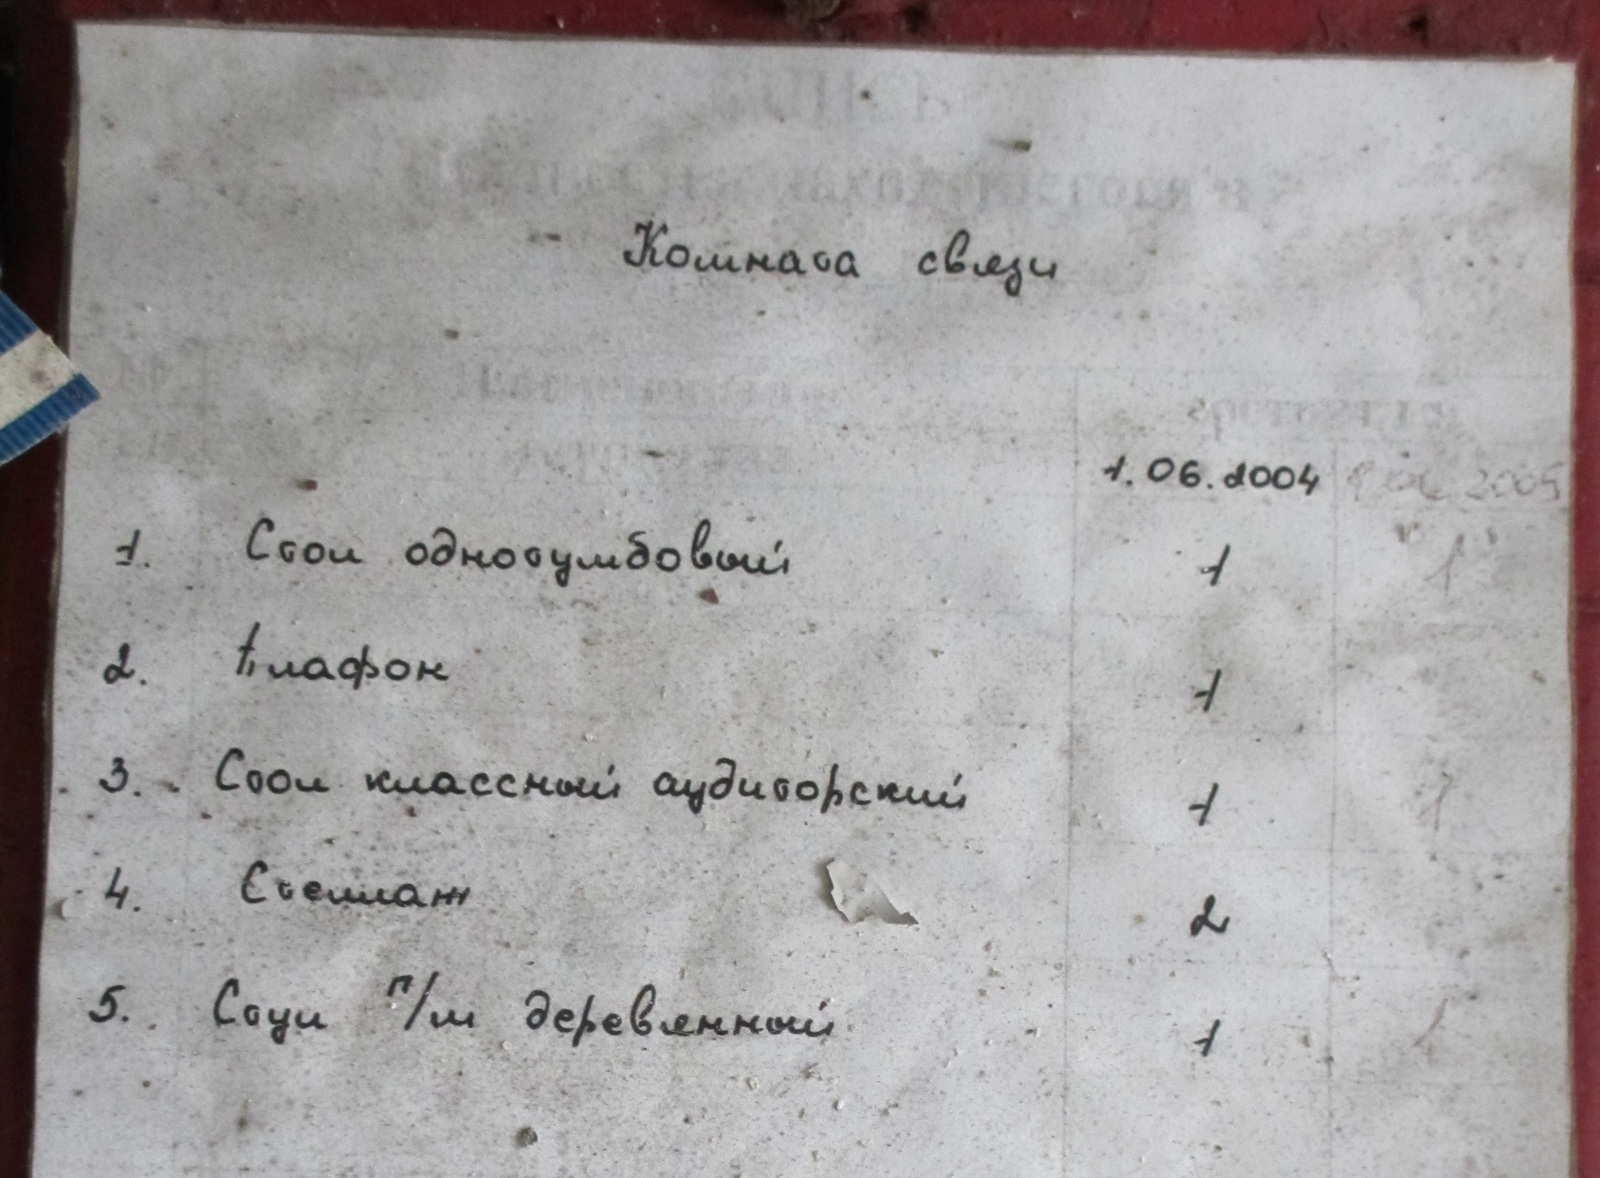 Комната связи
1.06.2004 1.06.2005
1. Стол однотумбовый 1 1
2. Плафон 1
3. Стол классный аудиторский 1 1
4. Стеллаж 2
5. Стул п/м деревянный 1 1